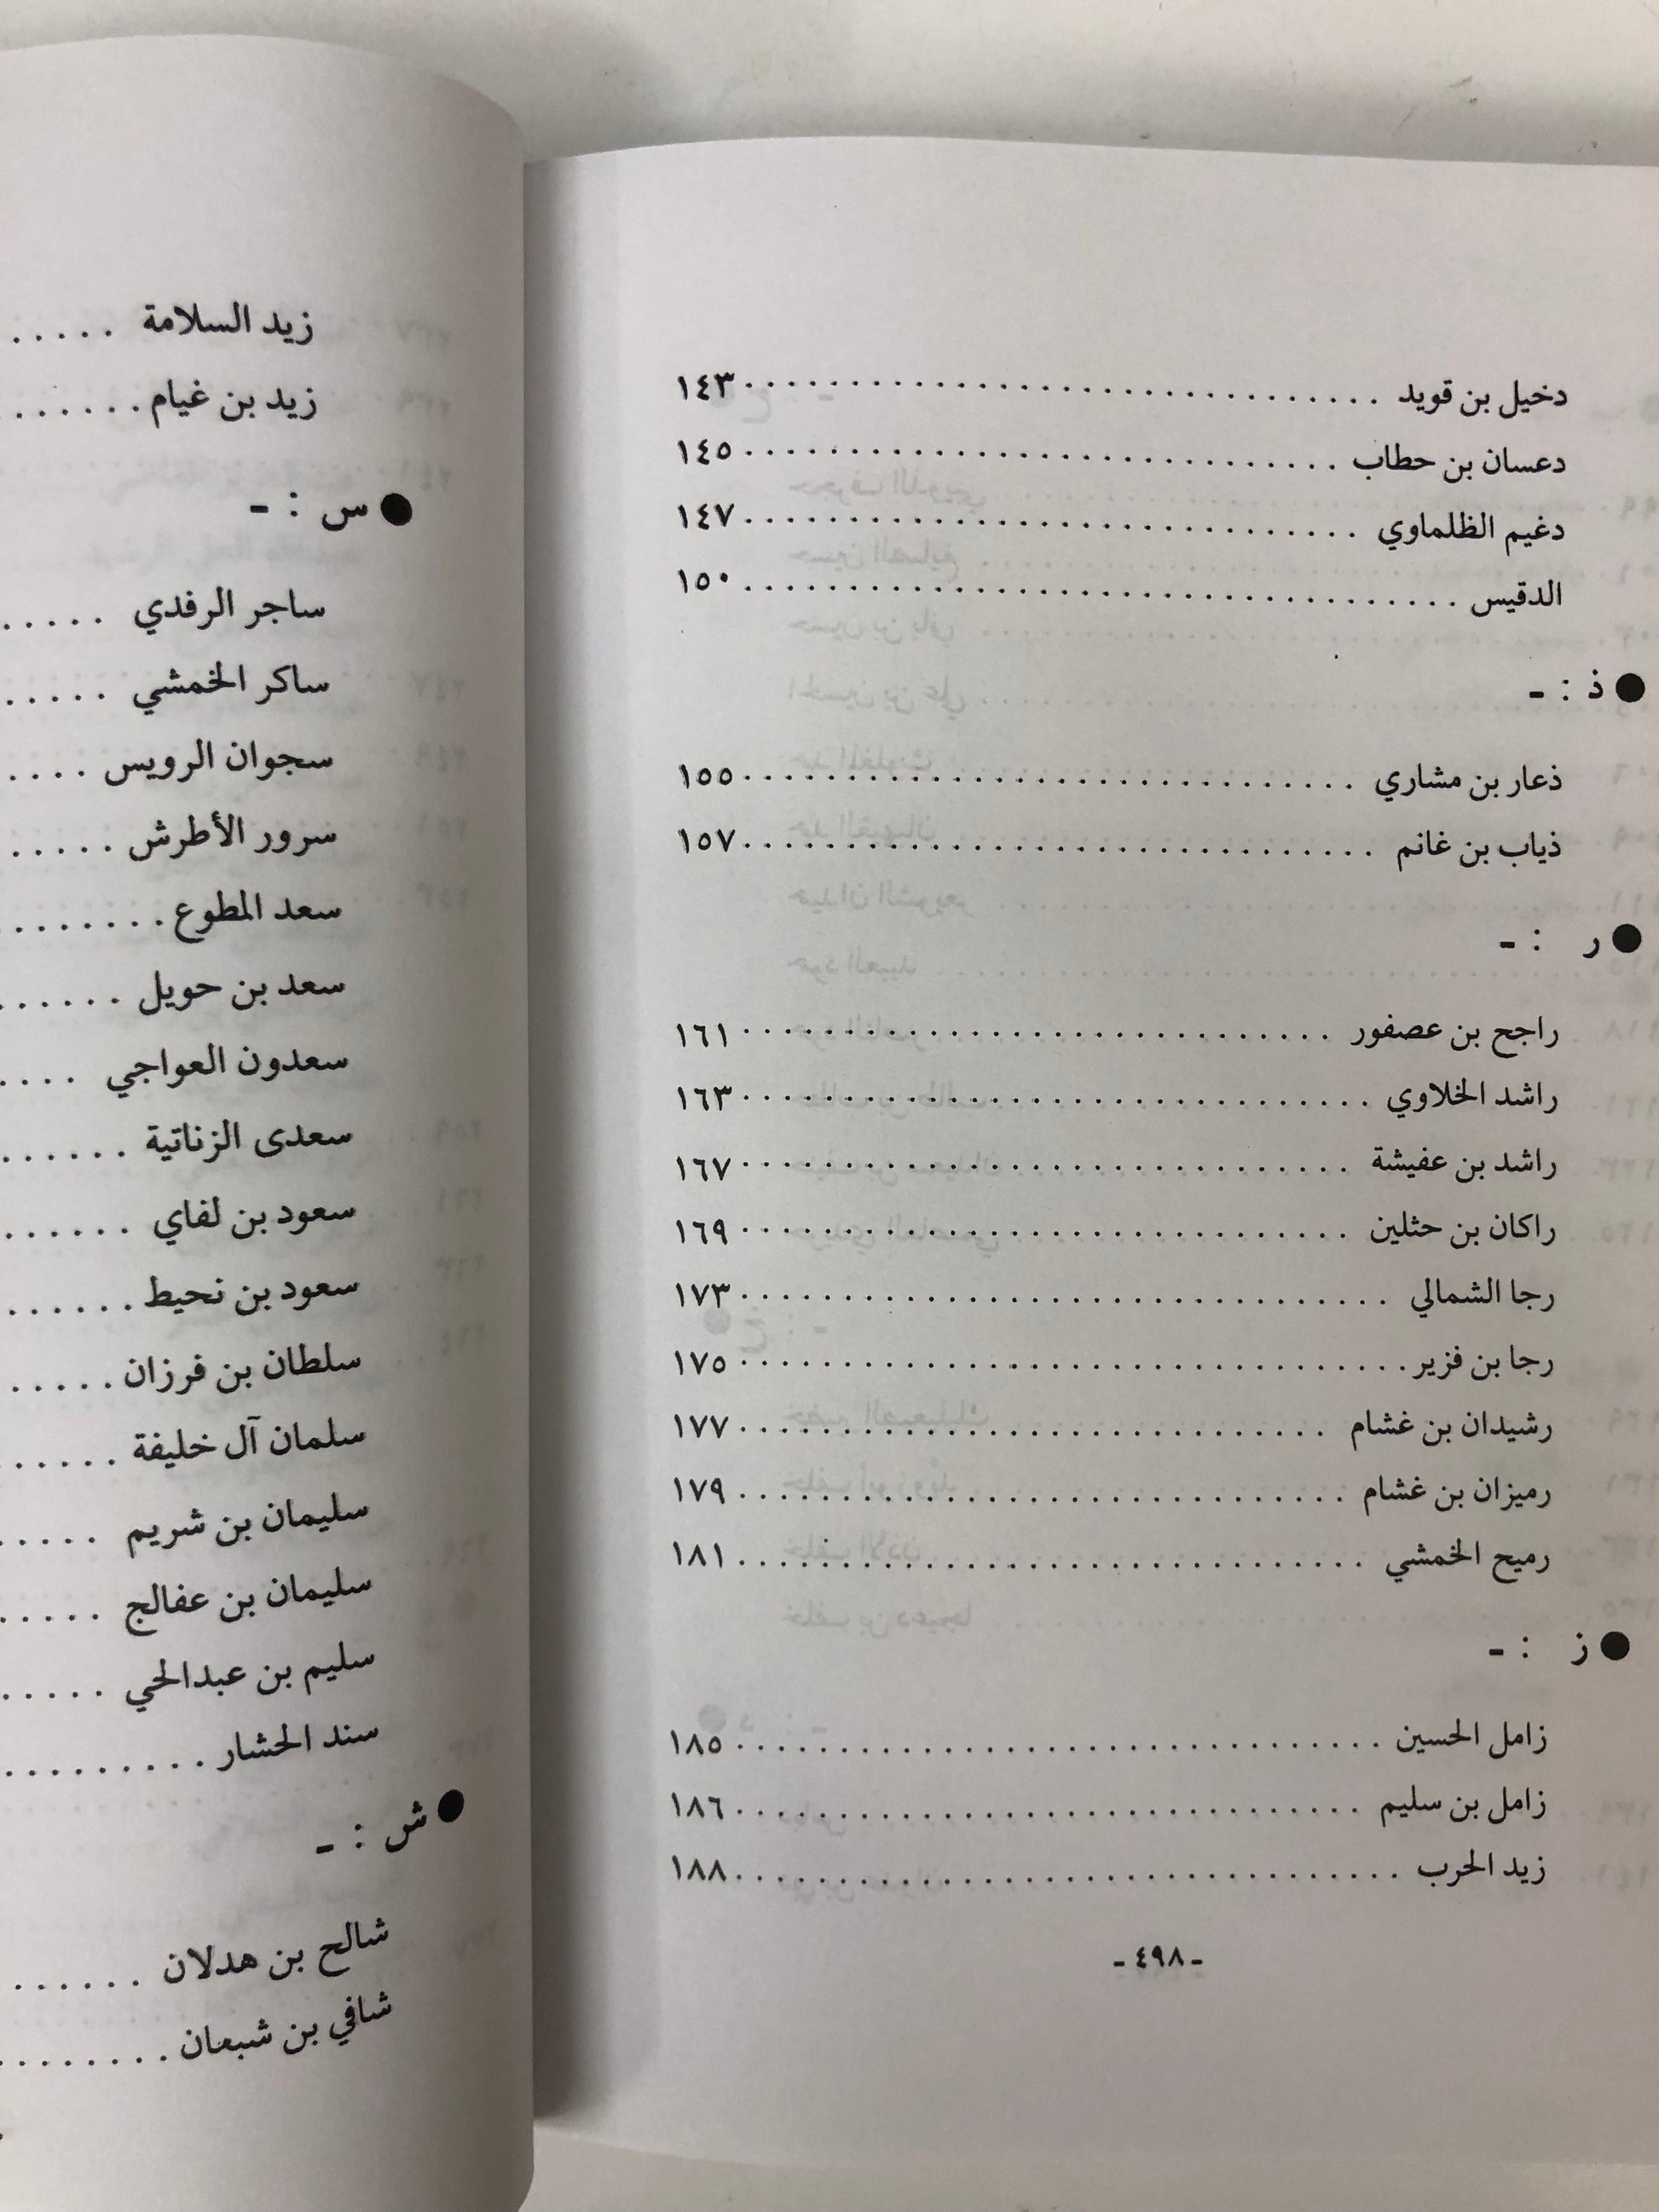 دخيل بن قويد ........ ١٤٣
دعسان بن حطاب ........ ١٤٥
دغيم الظلماوي ........ ١٤٧
الدقيس ........ ١٥٠
● ذ : -
ذعار بن مشاري ........ ١٥٥
ذياب بن غانم ........ ١٥٧
● ر : -
راجح بن عصفور ........ ١٦١
راشد الخلاوي ........ ١٦٣
راشد بن عفيشة ........ ١٦٧
راكان بن حثلين ........ ١٦٩
رجا الشمالي ........ ١٧٣
رجا بن فزير ........ ١٧٥
رشيدان بن غشام ........ ١٧٧
رميزان بن غشام ........ ١٧٩
رميح الخمشي ........ ١٨١
● ز : -
زامل الحسين ........ ١٨٥
زامل بن سليم ........ ١٨٦
زيد الحرب ........ ١٨٨
- ٤٩٨ -
زيد السلامة .....
زيد بن غيام .......
● س : -
ساجر الرفدي .....
ساكر الخمشي .....
سجوان الرويس ....
سرور الأطرش .....
سعد المطوع ........
سعد بن حويل ......
سعدون العواجي ....
سعدى الزناتية ......
سعود بن لفاي ......
سعود بن نحيط ......
سلطان بن فرزان .....
سلمان آل خليفة ......
سليمان بن شريم .....
سليمان بن عفالج .....
سليم بن عبدالحي .....
سند الحشار .........
● ش : -
شالح بن هدلان ......
شافي بن شبعان ........